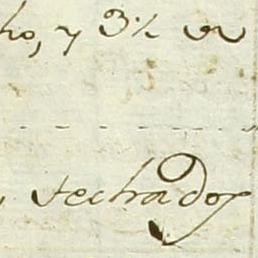 ho, y 3½ va
, techados